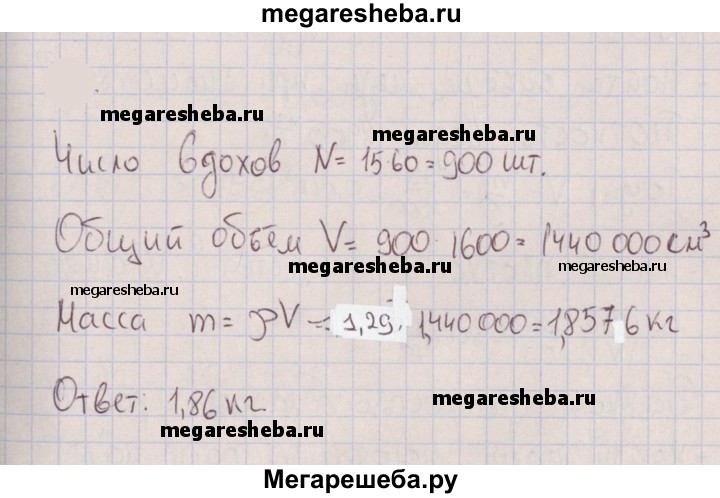 megaresheba.ru
megaresheba.ru
megaresheba.ru
Число вдохов N= 15·60=900 шт.
Общий объём V= 900·1600=1440 000 см³
megaresheba.ru
megaresheba.ru
megaresheba.ru
Масса m= ρV = 1,29· 1,440 000=1,857 6 кг
Ответ: 1,86 кг.
megaresheba.ru
megaresheba.ru
Мегарешеба.ру